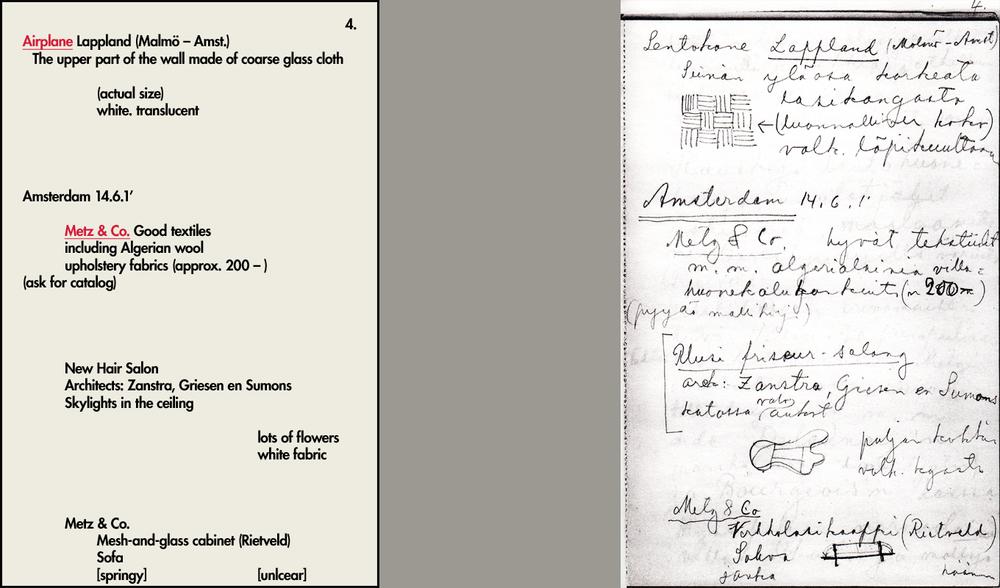 4.
Airplane Lappland (Malmö – Amst.)
The upper part of the wall made of coarse glass cloth
(actual size)
white. translucent
Amsterdam 14.6.1’
Metz & Co. Good textiles
including Algerian wool
upholstery fabrics (approx. 200 – )
(ask for catalog)
New Hair Salon
Architects: Zanstra, Griesen en Sumons
Skylights in the ceiling
lots of flowers
white fabric
Metz & Co.
Mesh-and-glass cabinet (Rietveld)
Sofa
[springy] [unlcear]
4.
Lentokone Lappland (Malmö – Amst)
Seinän yläosa karkeata
lasikangasta
(luonnollinen koko)
valk. läpikuultava
Amsterdam 14.6.1'
Metz & Co. hyvät tekstiilit
m. m. algerialaisia villa=
huonekalukankaita (n 200 )
(pyydä mallikirj.)
Uusi friseur-salong
ark: Zanstra, Giesen en Sumons
katossa valoaukot
paljon kukkia
valk. kangasta
Metz & Co
Verkkolasikaappi (Rietveld)
Sohva